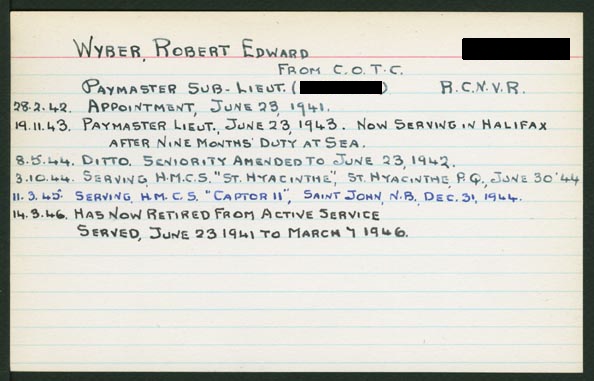 WYBER, ROBERT EDWARD
FROM C.O.T.C.
PAYMASTER SUB-LIEUT. ( ) R.C.N.V.R.
28.2.42. APPOINTMENT, JUNE 23, 1941.
19.11.43. PAYMASTER LIEUT., JUNE 23, 1943. NOW SERVING IN HALIFAX
AFTER NINE MONTHS' DUTY AT SEA.
8.5.44. DITTO. SENIORITY AMENDED TO JUNE 23, 1942.
3.10.44. SERVING, H.M.C.S. "ST. HYACINTHE", ST. HYACINTHE, P.Q., JUNE 30 '44
11.3.45. SERVING, H.M.C.S. "CAPTOR II", SAINT JOHN, N.B., DEC. 31, 1944.
14.3.46. HAS NOW RETIRED FROM ACTIVE SERVICE
SERVED, JUNE 23 1941 TO MARCH 7 1946.